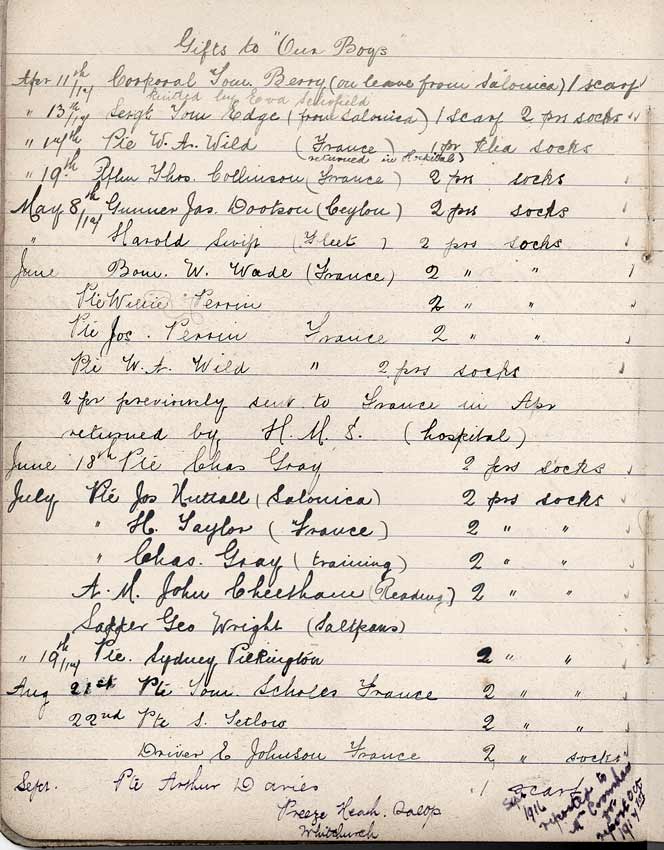 Gifts to "Our Boys"
Apr 11th/17 Corporal Tom. Berry (on leave from Salonica) 1 scarf
knitted by Eva Schofield
" 13th/17 Sergt Tom Edge (from Salonica) 1 scarf 2 prs socks
" 14th Pte W. A. Wild (France) 1 pr socks
returned in Hospital)
" 19th Thos. Collinson (France) 2 prs socks
May 8th/17 Gunner Jas. Dootson (Ceylon) 2 prs socks
" Harold Swift (Fleet) 2 prs socks
June Bom. W. Wade (France) 2 " "
Pte Willie Perrin 2 " "
Pte Jos. Perrin France 2 " "
Pte W. A. Wild " 2 prs socks
2 pr previously sent to France in Apr
returned by H. M. S. (hospital)
June 18th Pte Chas Gray 2 prs socks
July Pte Jos Nuttall (Salonica) 2 prs socks
" H. Taylor (France) 2 " "
" Chas. Gray (training) 2 " "
A. M. John Cheetham (Reading) 2 " "
Sapper Geo Wright (Saltpans)
" 19th/17 Pte. Sydney Pilkington 2 " "
Aug 21st Pte Tom. Scholes France 2 " "
22nd Pte S. Tetlow 2 " "
Driver E Johnson France 2 " socks
Sept. Pte Arthur Davies 1 scarf
Preeze Heath. Salop
Whitchurch
Sept 1916
reported to
Mr
report Oct
1st